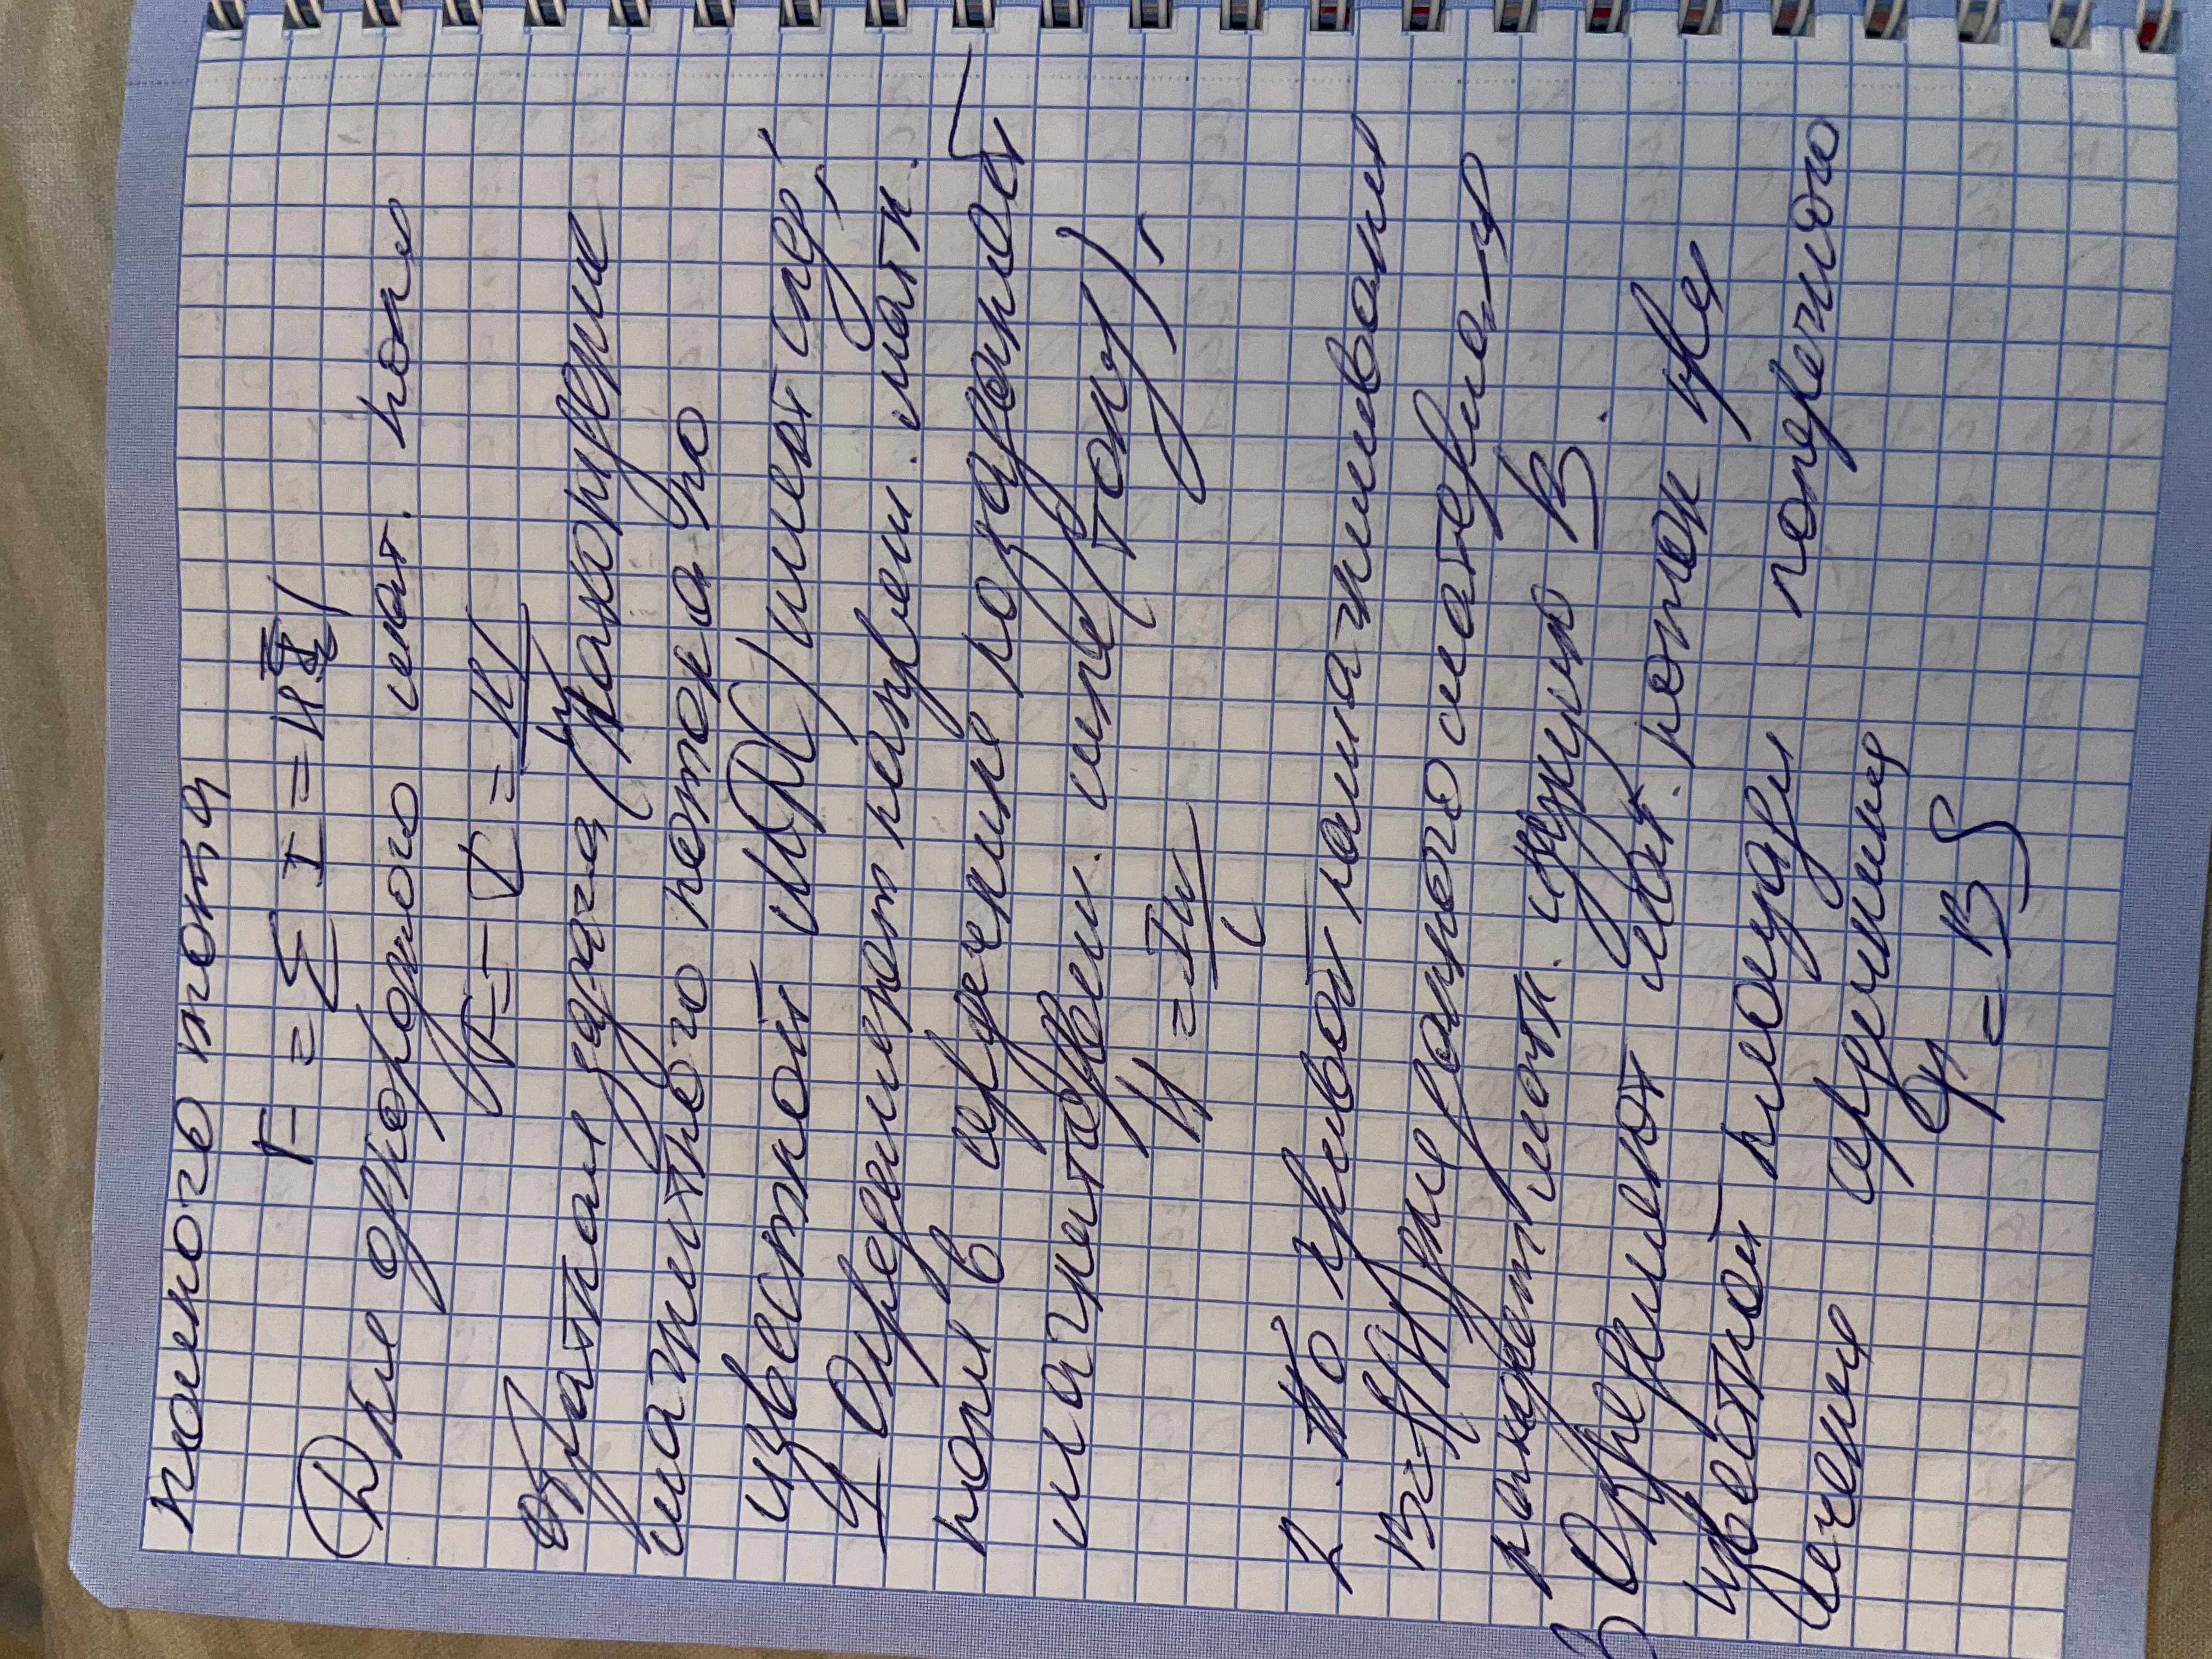 полного тока
F = Σ I = H
Для однородного маг. поля
F = = Hl
Обратная задача (Нахождение
магнитного потока по
известной МДС) имеет след.
1 Определяют напряж. магн.
поля в сердечнике
магнитодвиж. силе (току),
H = Iw/l
2. По кривой намагничивания
B = f(H) для данного материала
находят магн. индукцию B.
3 Определяют маг. поток для
известной площади поперечного
сечения сердечника
Ф = BS